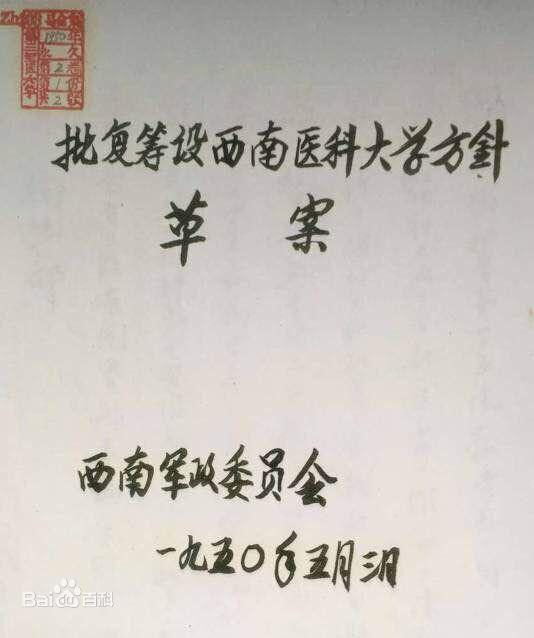 1950
2
1
2
批复筹设西南医科大学方針
草 案
西南军政委员会
一九五〇年五月三日
Bai百科